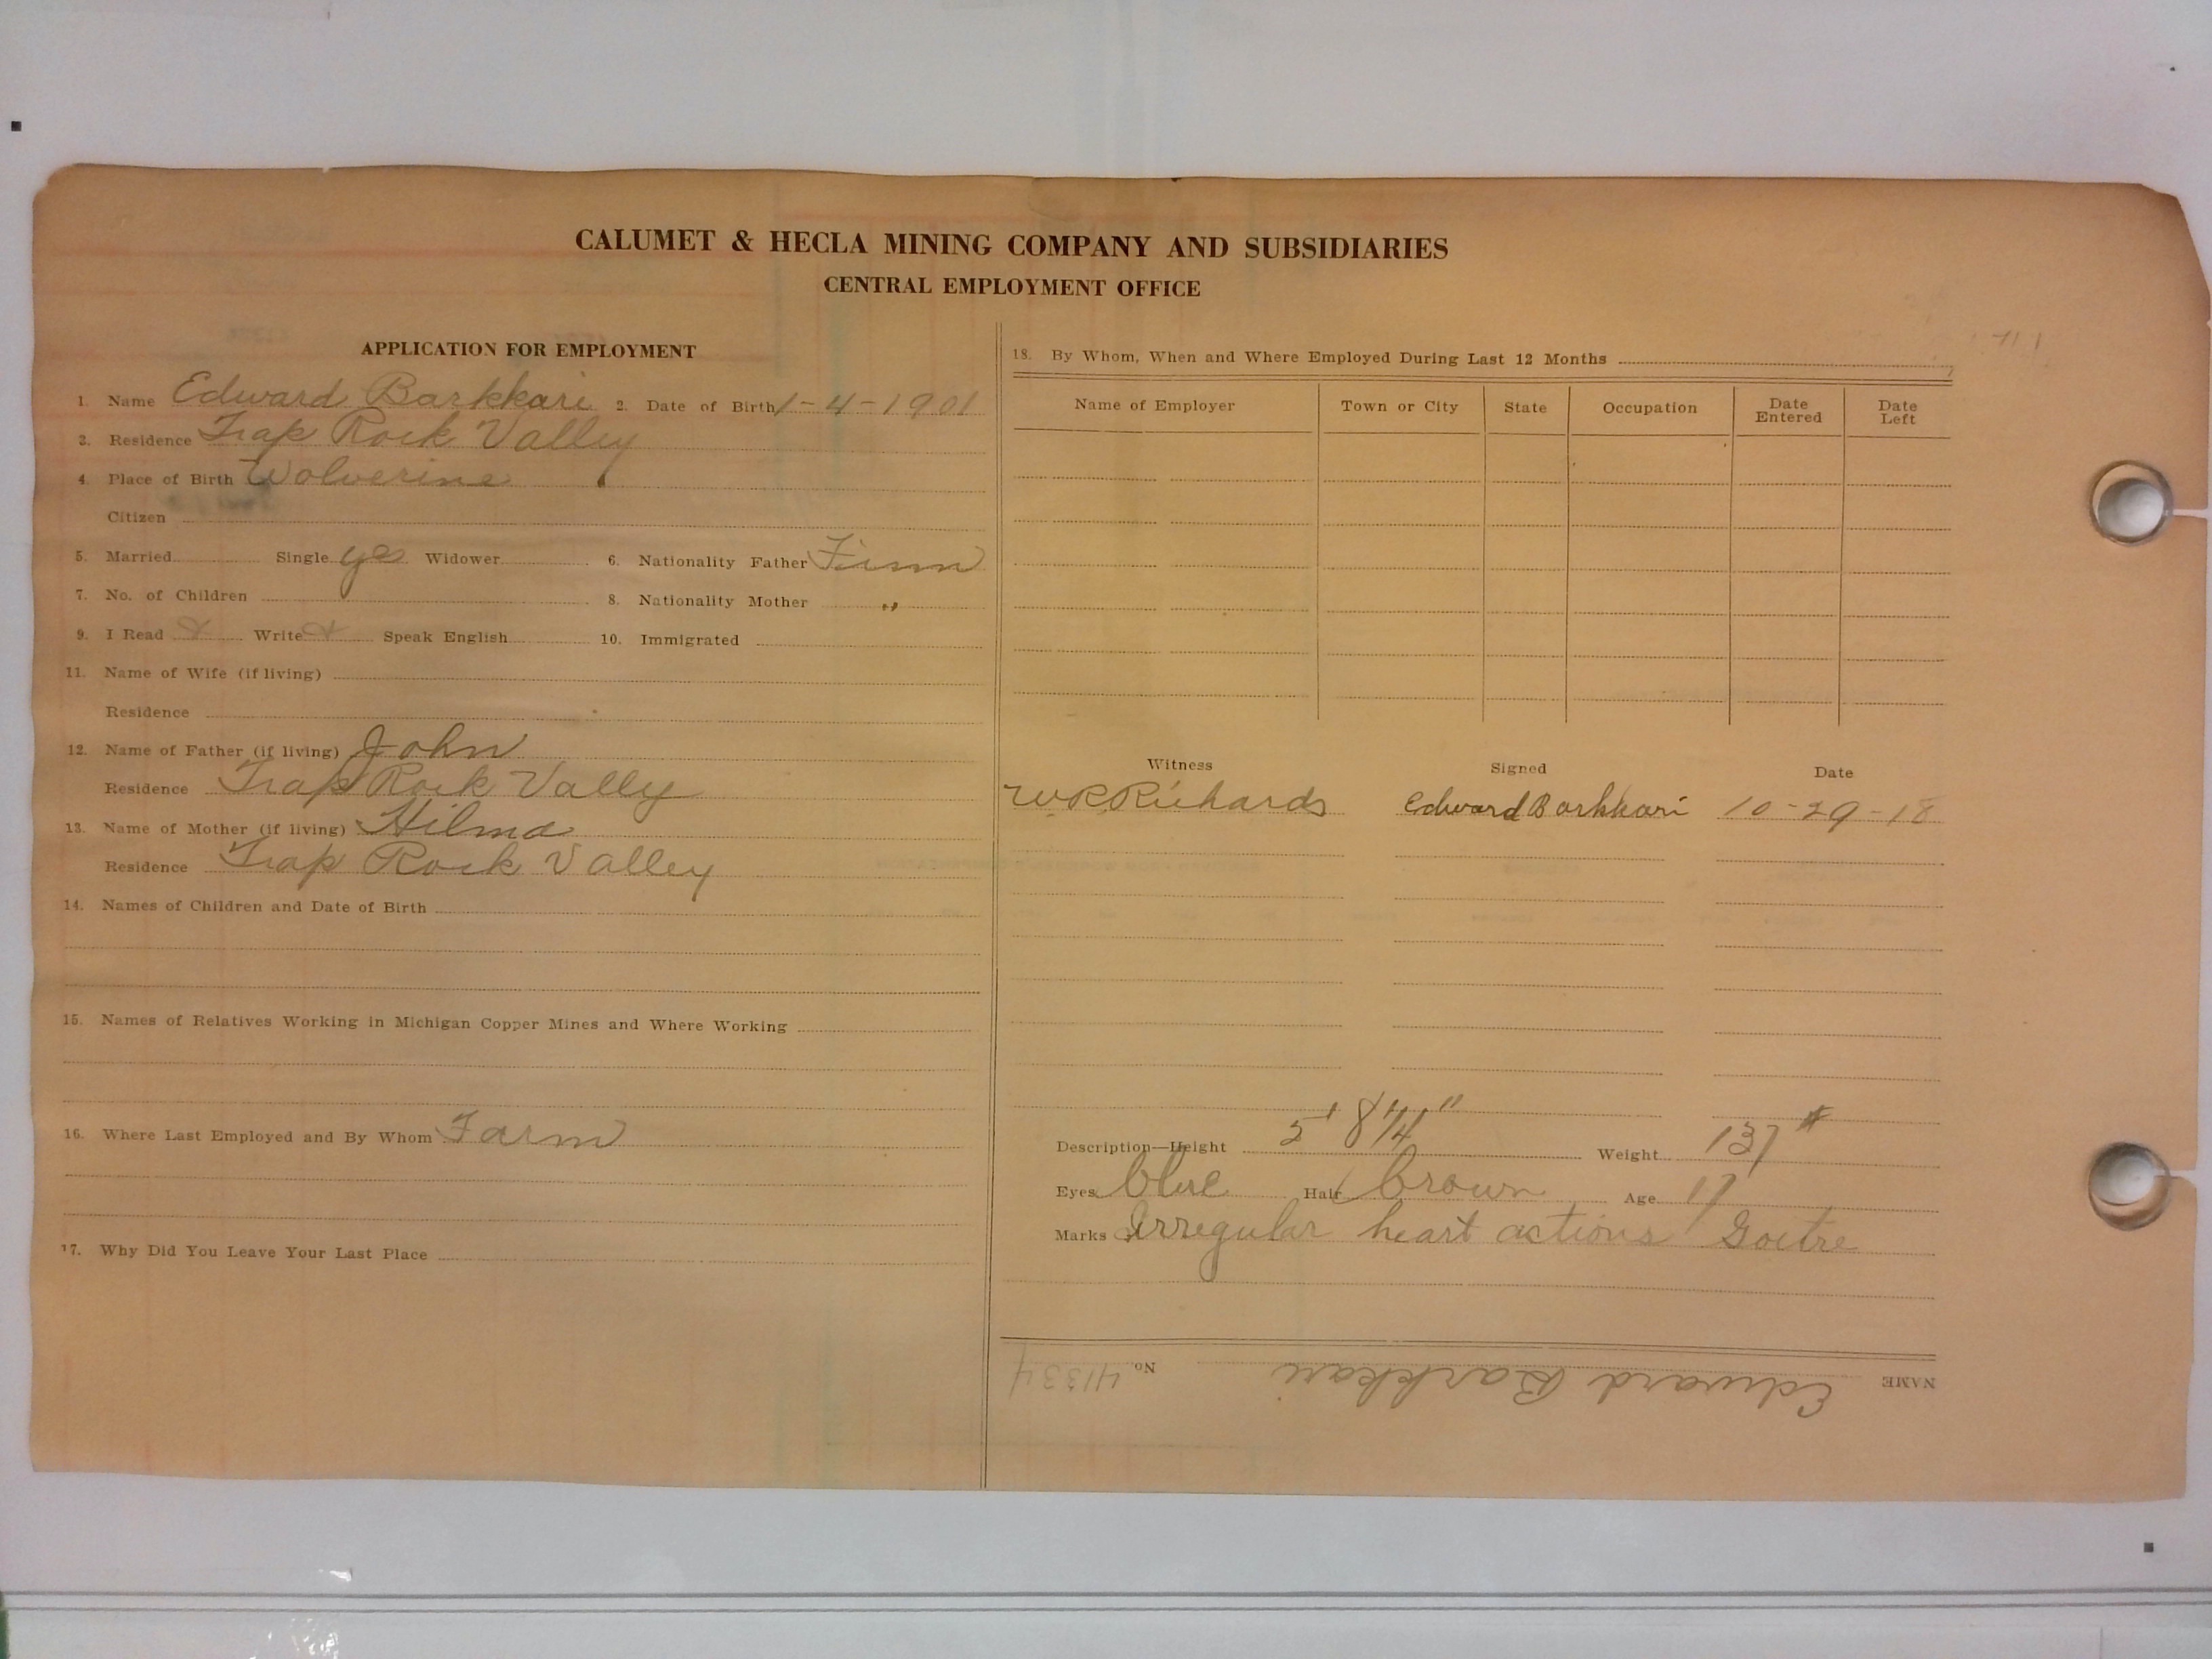 CALUMET & HECLA MINING COMPANY AND SUBSIDIARIES
CENTRAL EMPLOYMENT OFFICE
APPLICATION FOR EMPLOYMENT
1. Name Edward Barkkari 2. Date of Birth 1-4-1901
3. Residence Trap Rock Valley
4. Place of Birth Wolverine
Citizen
5. Married Single yes Widower 6. Nationality Father Finn
7. No. of Children 8. Nationality Mother "
9. I Read Write Speak English 10. Immigrated
11. Name of Wife (if living)
Residence
12. Name of Father (if living) John
Residence Trap Rock Valley
13. Name of Mother (if living) Hilma
Residence Trap Rock Valley
14. Names of Children and Date of Birth
15. Names of Relatives Working in Michigan Copper Mines and Where Working
16. Where Last Employed and By Whom Farm
17. Why Did You Leave Your Last Place
18. By Whom, When and Where Employed During Last 12 Months
Name of Employer Town or City State Occupation Date Entered Date Left
Witness Signed Date
W R Richards Edward Barkkari 10-29-18
Description—Height 5' 8 1/4" Weight 137 #
Eyes blue Hair brown Age 17
Marks Irregular heart actions Goitre
NAME Edward Barkkari No. 41334